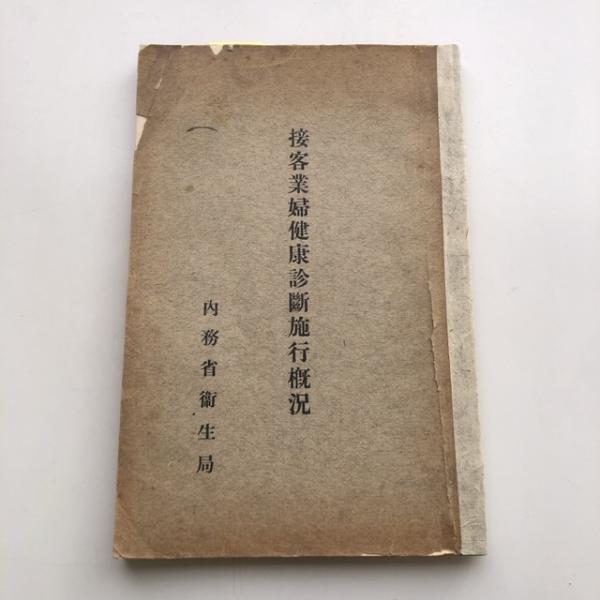 接客業婦健康診斷施行概況
內務省衞生局